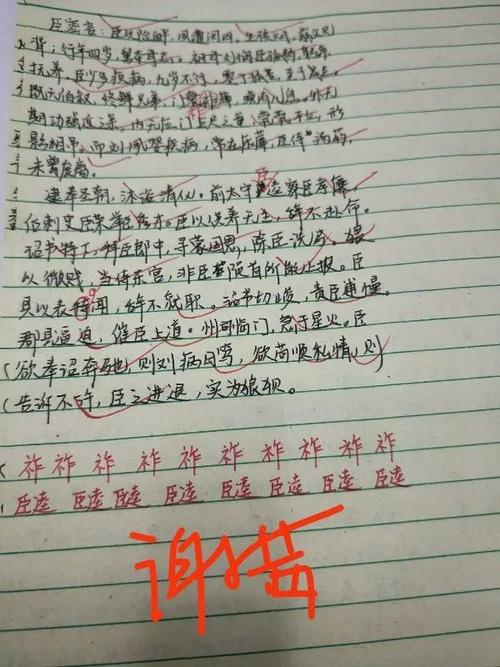 臣密言：臣以险衅，夙遭闵凶，生孩六月，慈父见
背；行年四岁，舅夺母志。祖母刘悯臣孤弱，躬亲
抚养，臣少多疾病，九岁不行，零丁孤苦，至于成立。
既无伯叔，终鲜兄弟，门衰祚薄，晚有儿息。外无
期功强近之亲，内无应门五尺之童，茕茕孑立，形
影相吊。而刘夙婴疾病，常在床蓐，臣侍汤药，
未曾废离。
逮奉圣朝，沐浴清化。前太守臣逵察臣孝廉，
后刺史臣荣举臣秀才。臣以供养无主，辞不赴命。
诏书特下，拜臣郎中，寻蒙国恩，除臣洗马。猥
以微贱，当侍东宫，非臣陨首所能上报。臣
具以表闻，辞不就职。诏书切峻，责臣逋慢。
郡县逼迫，催臣上道。州司临门，急于星火。臣
欲奉诏奔驰，则刘病日笃，欲苟顺私情，则
告诉不许，臣之进退，实为狼狈。
祚 祚 祚 祚 祚 祚 祚 祚 祚 祚
臣逵 臣逵 臣逵 臣逵 臣逵 臣逵 臣逵 臣逵
谢茜